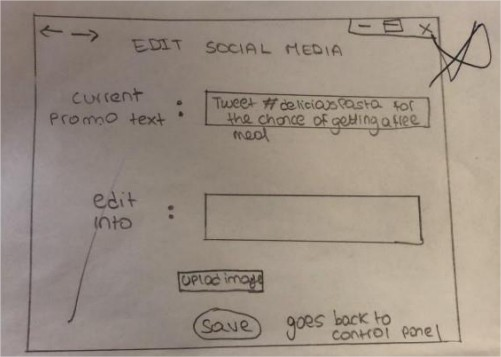 EDIT SOCIAL MEDIA
current
promo text :
Tweet #deliciouspasta for
the chance of getting a free
meal
edit
into :
uplod image
save
goes back to
control panel